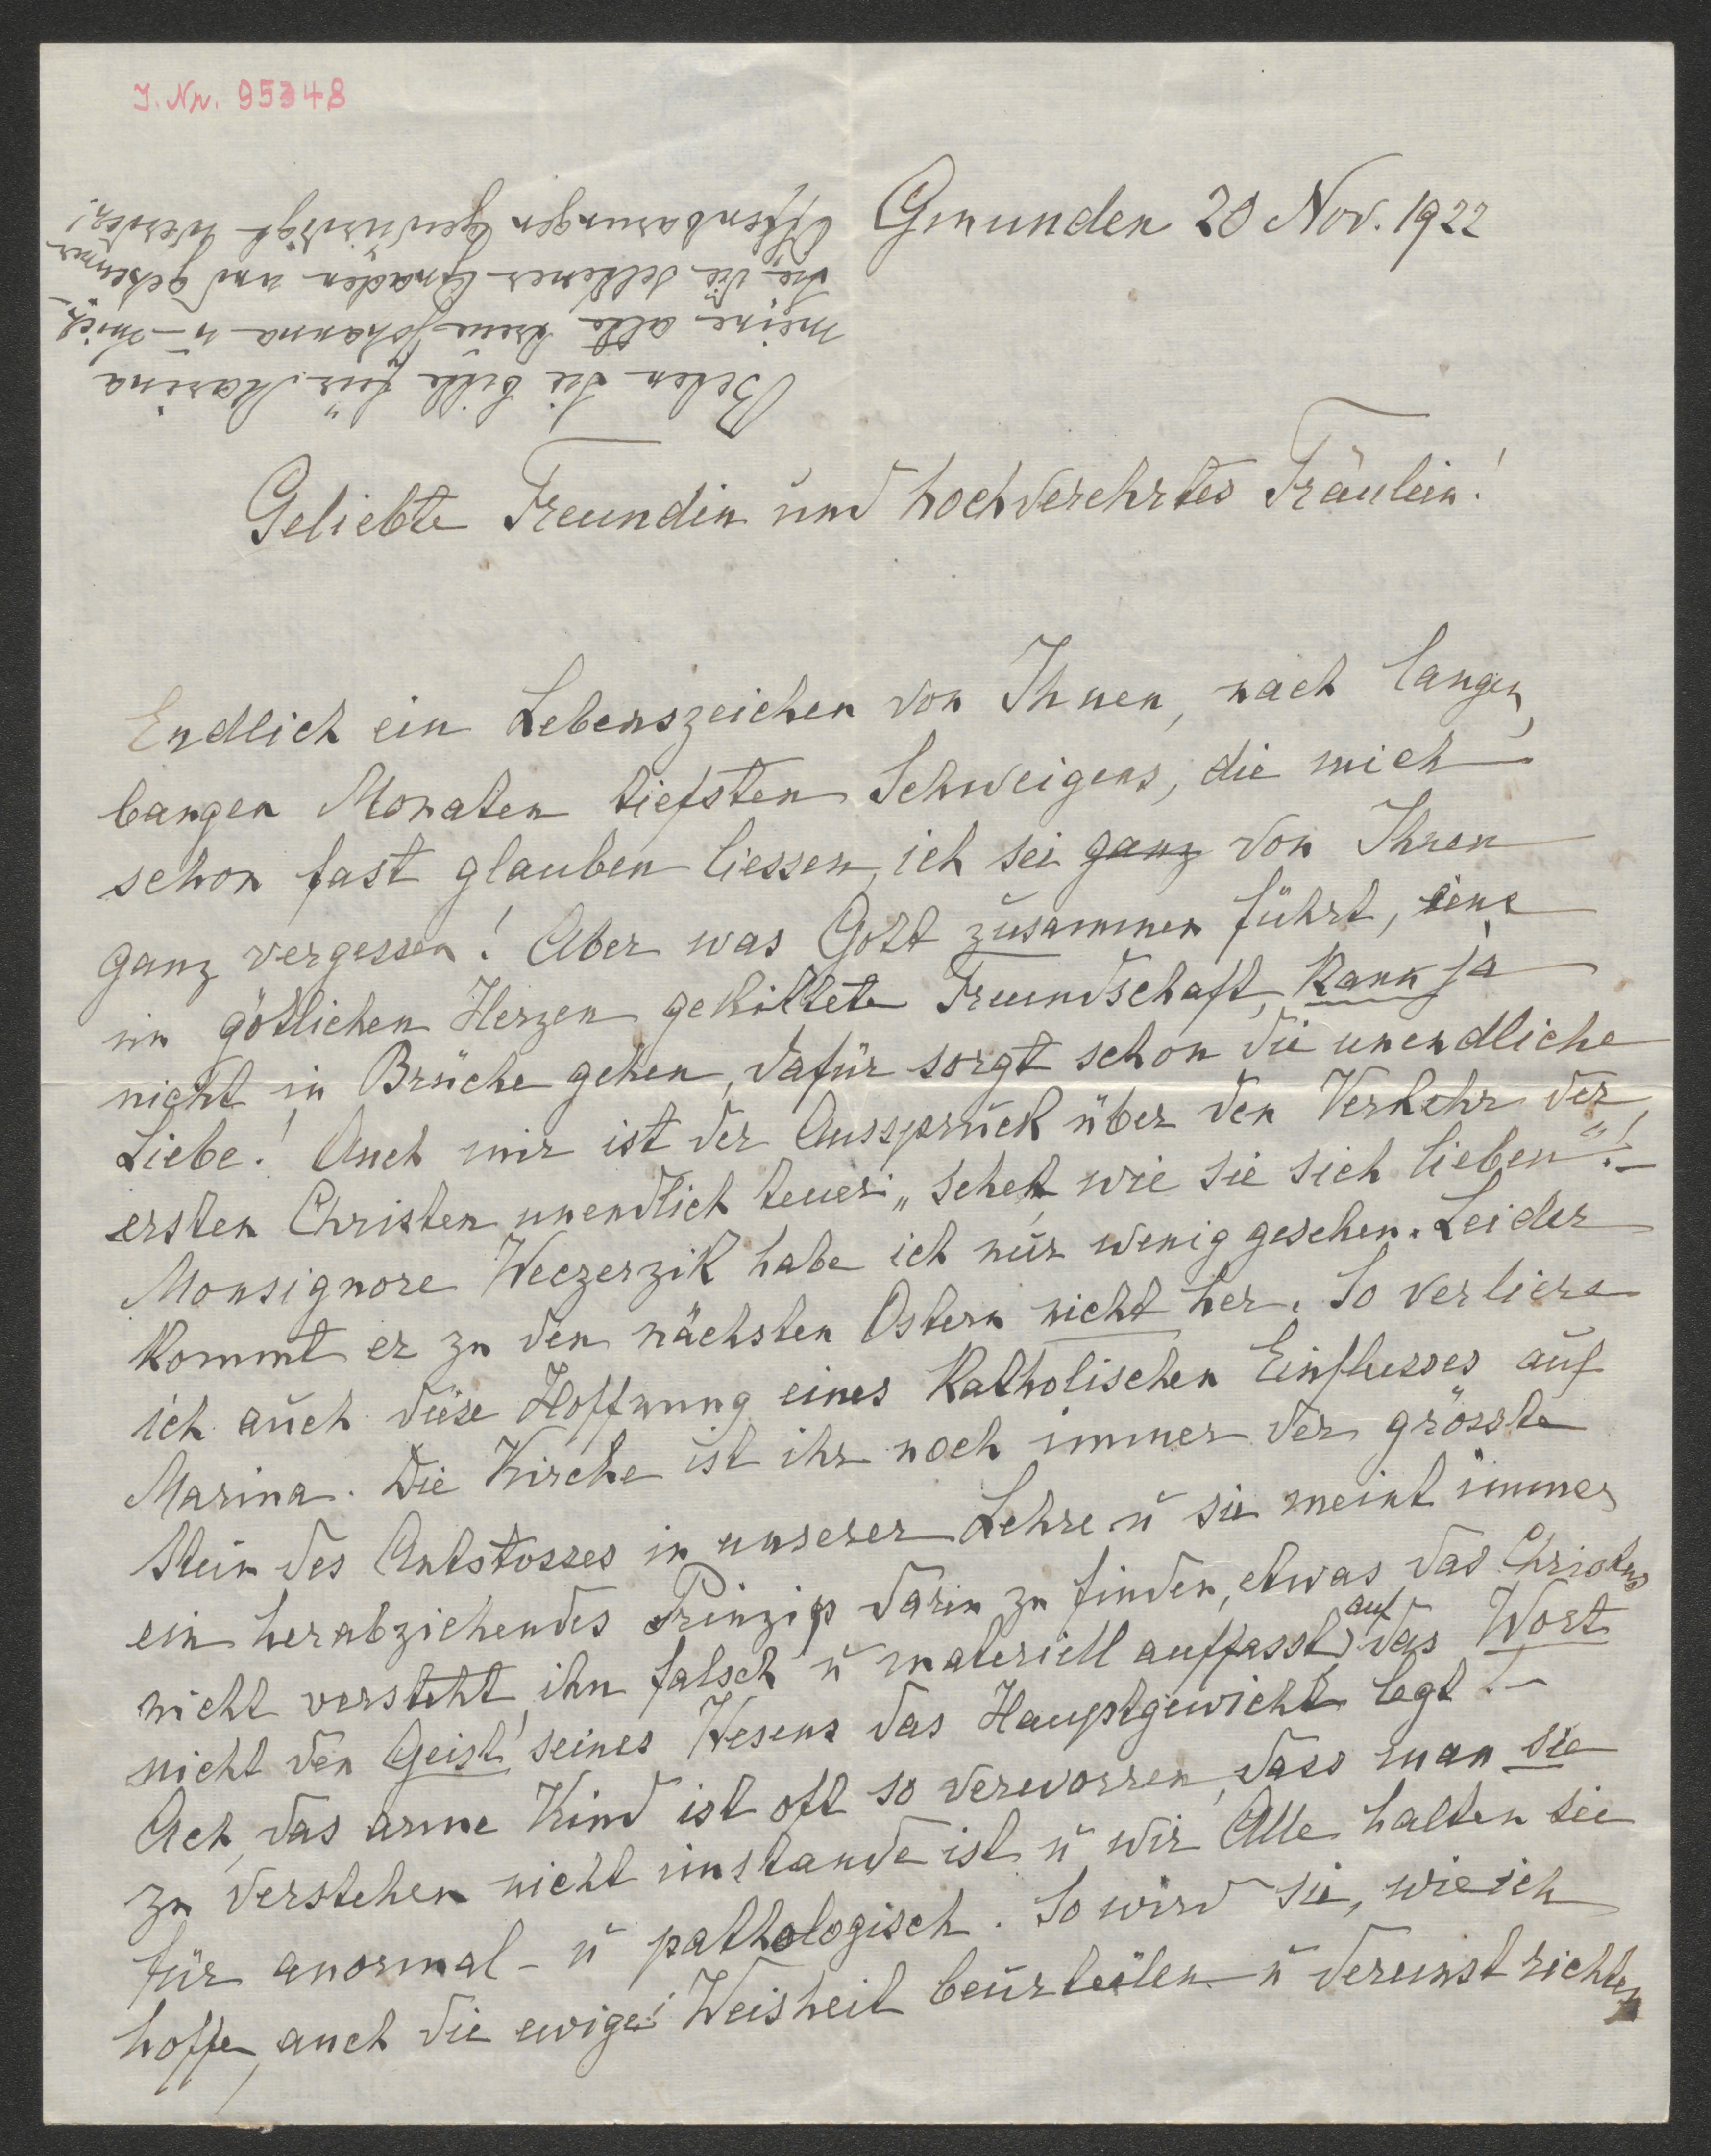 J. Nr. 95348
Gmunden 20 Nov. 1922
Beten Sie bitte für Marina
meine alte, treue Johanna u – mich,
Sie, die seltener Gnaden und geheimer
Offenbarungen gewürdigt werden!
Geliebte Freundin und hochverehrtes Fräulein!
Endlich ein Lebenszeichen von Ihnen, nach langen,
bangen Monaten tiefsten Schweigens, die mich
schon fast glauben liessen, ich sei ganz von Ihnen
ganz vergessen! Aber was Gott zusammen führt, eine
im götlichen Herzen gekittete Freundschaft, kann ja
nicht in Brüche gehen, dafür sorgt schon die unendliche
Liebe! Auch mir ist der Ausspruck über den Verkehr der
ersten Christen unendlich teuer: „sehet, wie sie sich lieben"! –
Monsignore Weczerzik habe ich nur wenig gesehen. Leider
kommt er zu den nächsten Ostern nicht her. So verliere
ich auch diese Hoffnung eines katholischen Einflusses auf
Marina. Die Kirche ist ihr noch immer der grösste
Stein des Antstosses in unserer Lehre u sie meint immer
ein herabziehendes Prinzip darin zu finden, etwas, das Christus
nicht versteht, ihn falsch u materiell auffasst, auf das Wort
nicht den Geist seines Wesens das Hauptgewicht legt! –
Ach, das arme Kind ist oft so verworren, dass man sie
zu verstehen nicht imstande ist u wir Alle halten sie
für anormal – u pathologisch. So wird sie, wie ich
hoffe, auch die ewige Weisheit beurteilen u dereinst richten